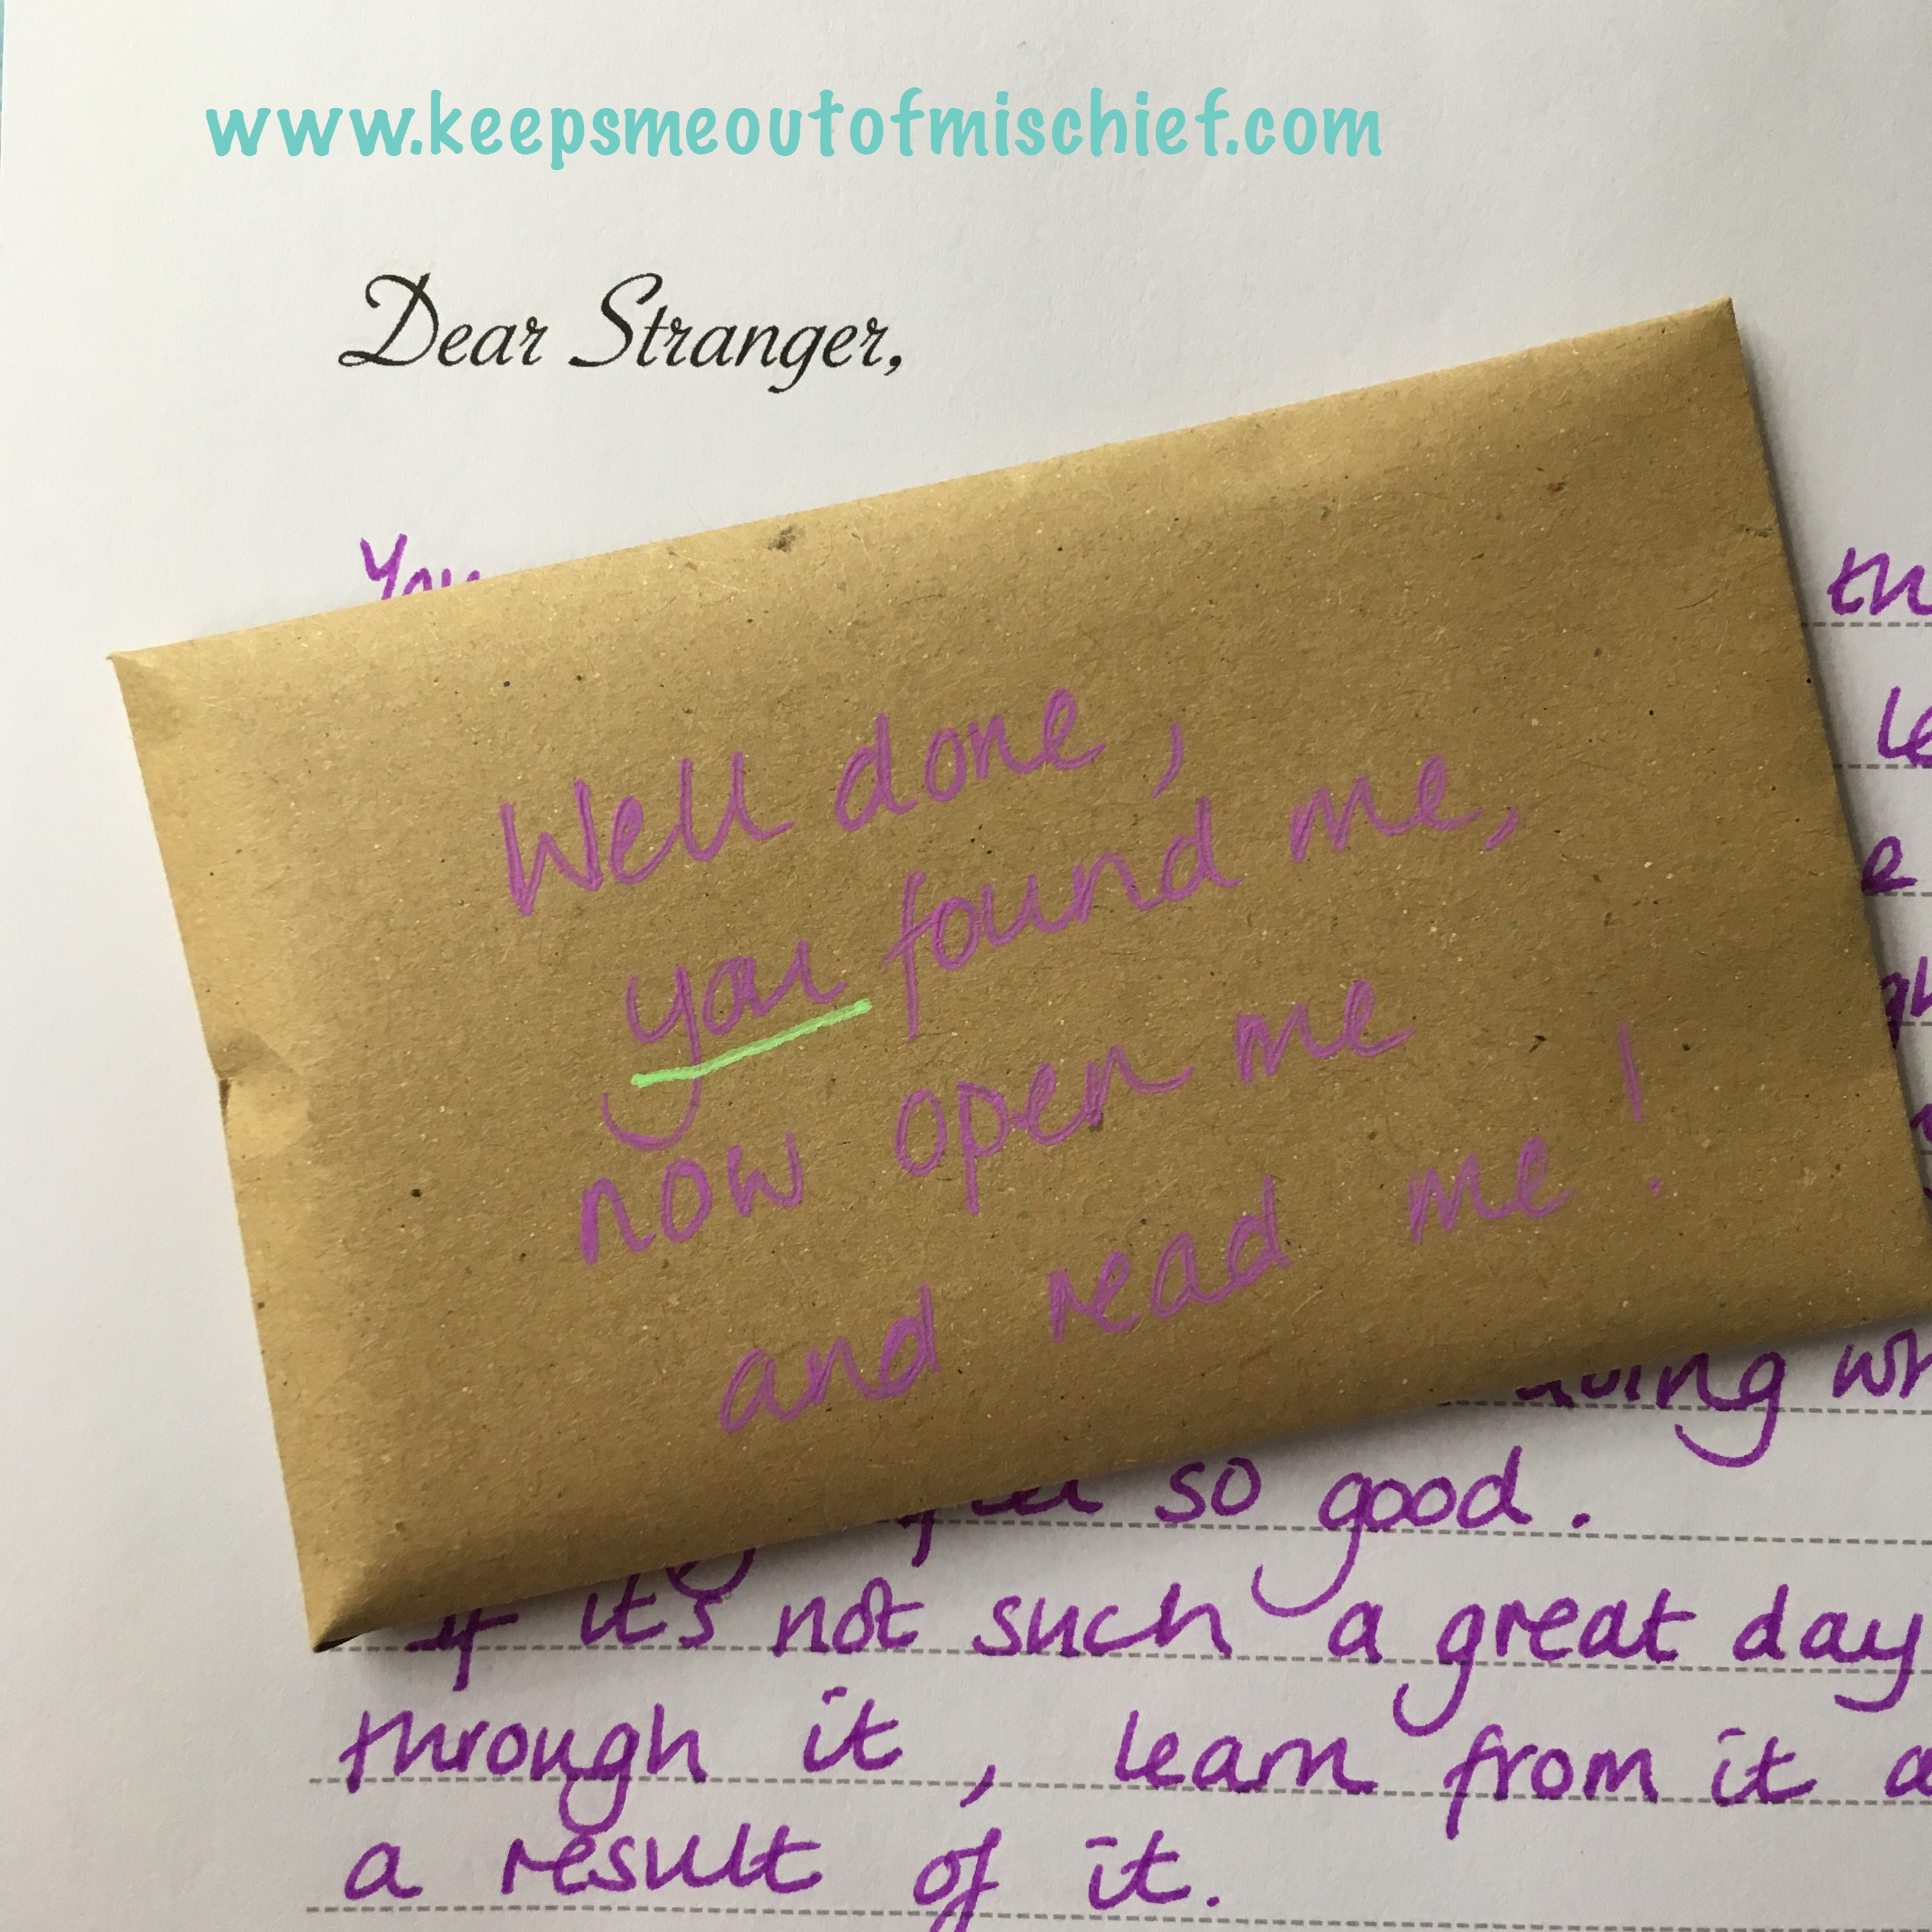 www.keepsmeoutofmischief.com
Dear Stranger,
You
Well done,
you found me,
now open me
and read me!
so good.
If it's not such a great day
through it, learn from it a
a result of it.